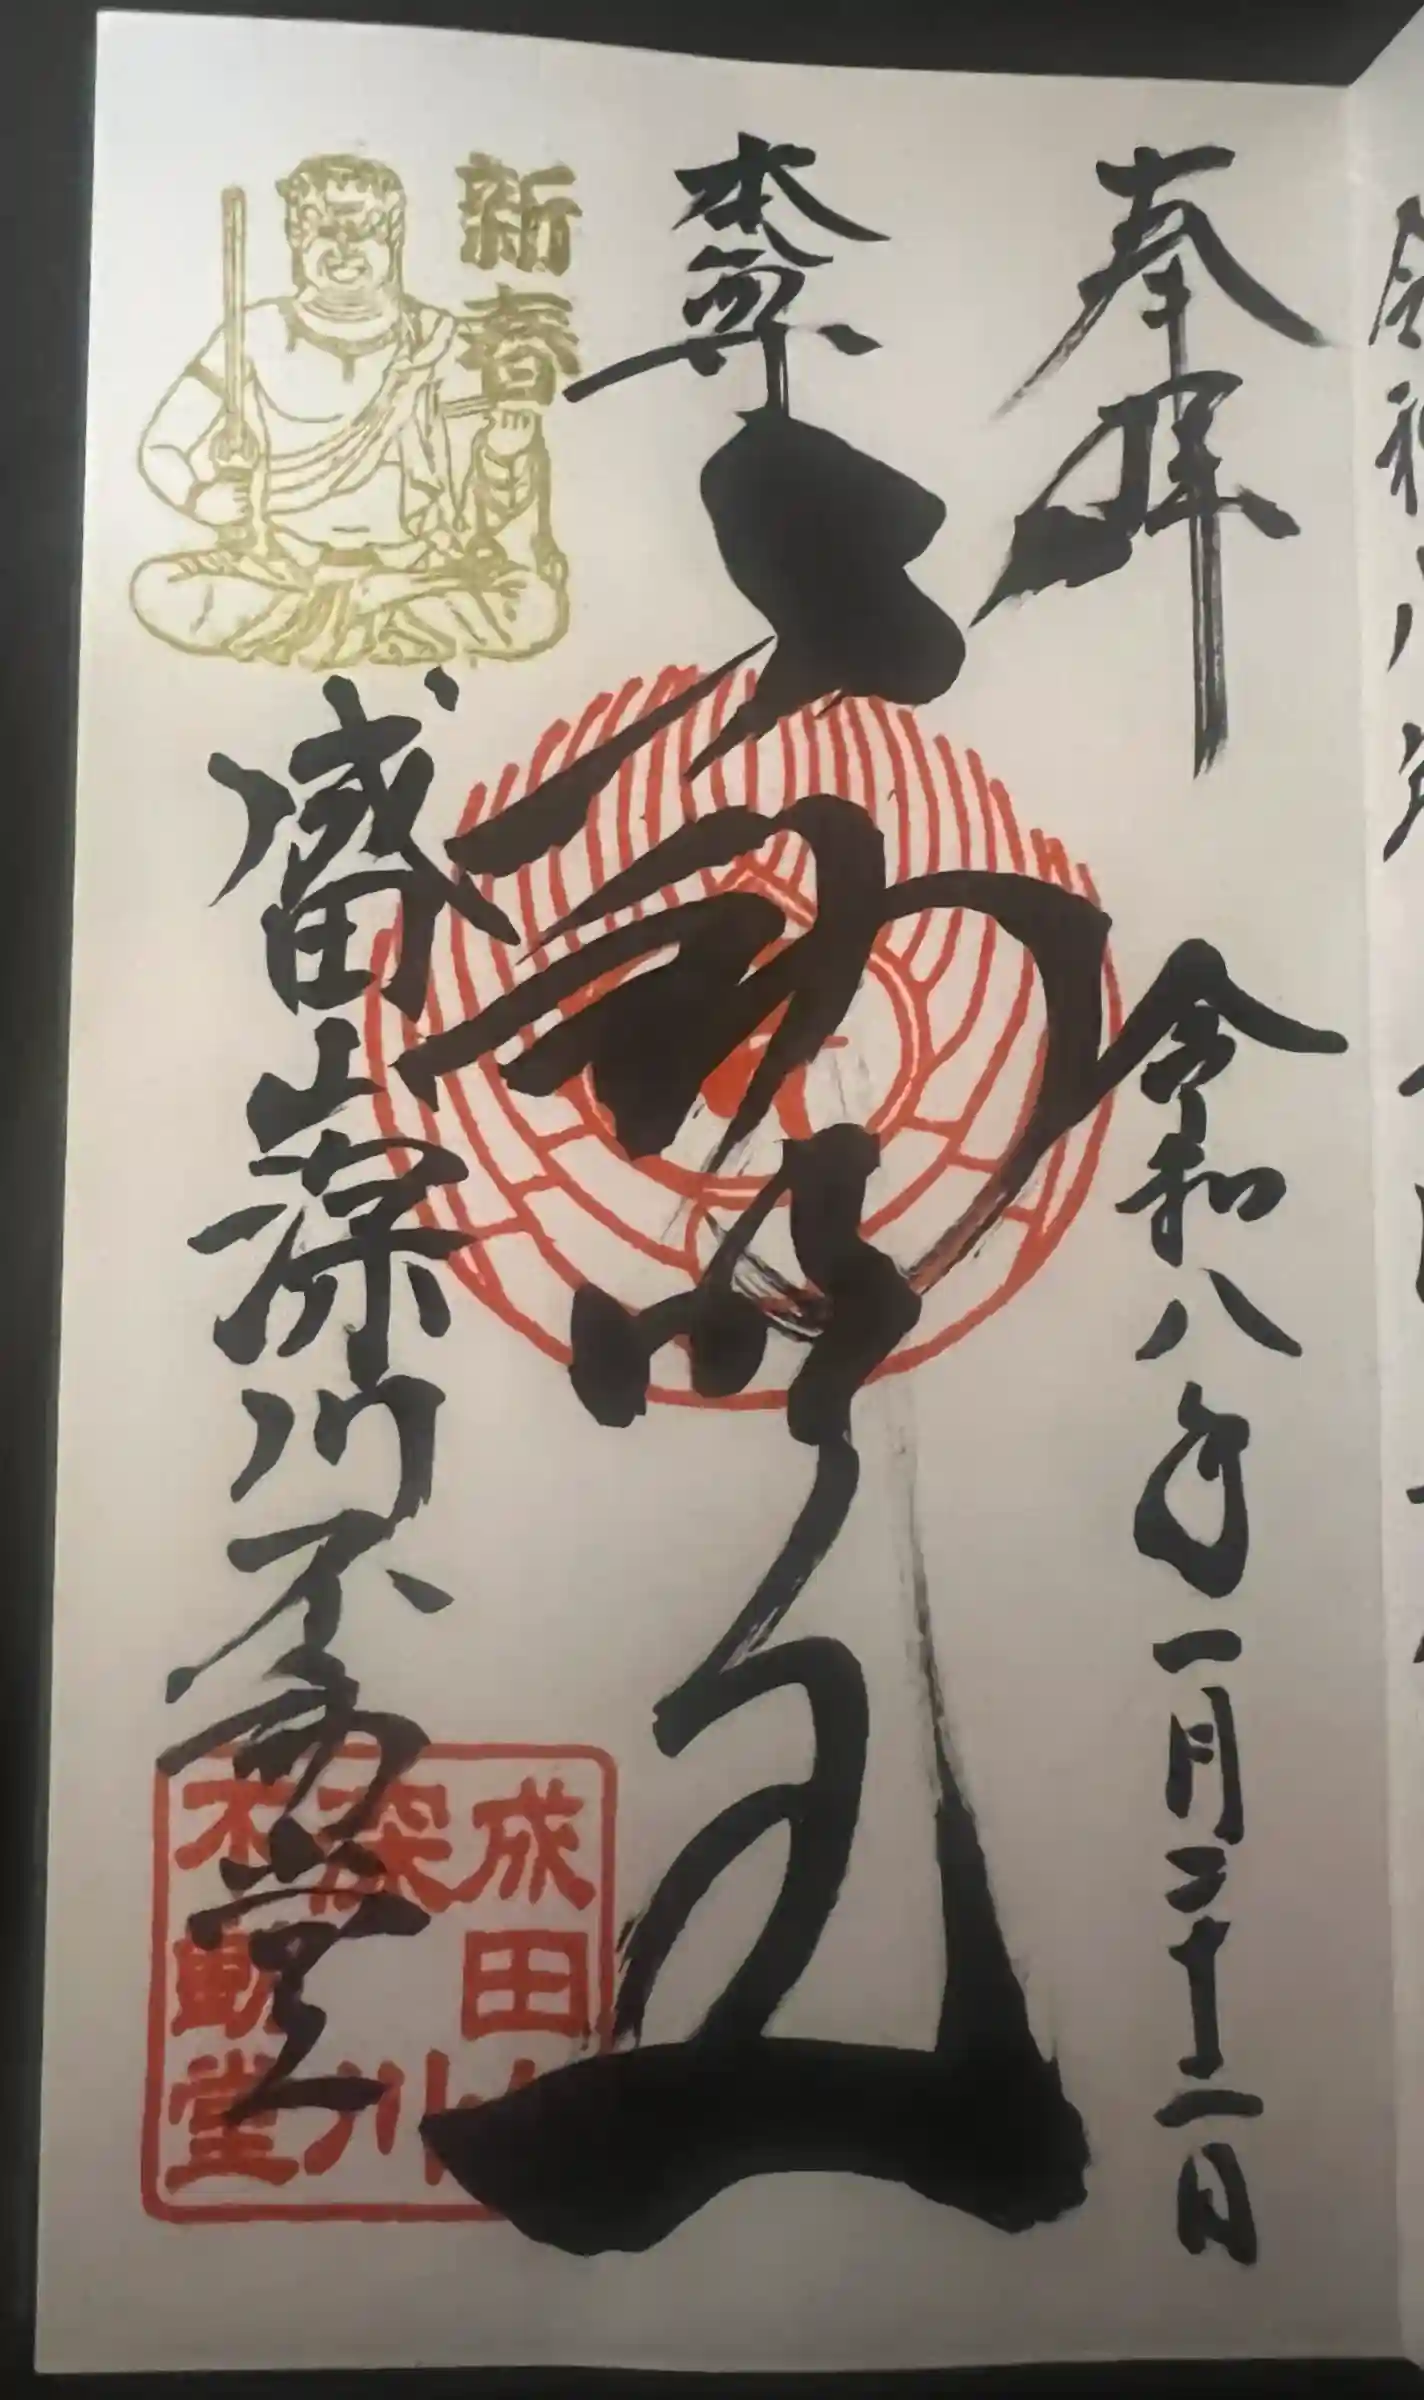 奉拝 令和八年一月二十二日
本尊 不動明王
新春
成田山深川不動堂
成田山
深川
不動堂